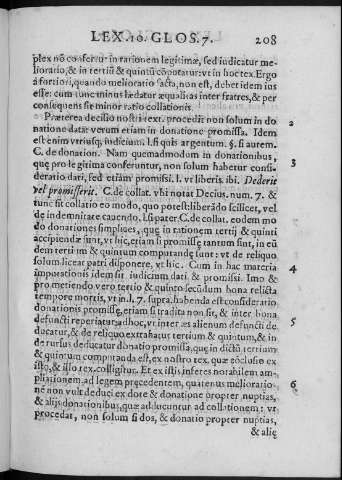 LEX.10. GLOS.7. 208
plex nō conferūtur in rationem legitimæ, sed iudicatur me-
lioratio, & in tertiū & quintū cōputatur: vt in hoc tex. Ergo
à fortiori, quando melioratio facta, non est, debet idem ius
esse: cum tunc minus lædatur æqualitas inter fratres, & per
consequens sit minor ratio collationis.
Præterea decisio nostri text. procedit non solum in do
natione data: verum etiam in donatione promissa. Idem 2
est enim vtriusq; iudicium. l. si quis argentum. §. si autem.
C. de donation. Nam quemadmodum in donationibus, 3
quę pro legitima conferuntur, non solum habetur consi-
deratio dati, sed etiam promissi. l. vt liberis. ibi. Dederit
vel promisserit. C. de collat. vbi notat Decius. num. 7. &
tunc sit collatio eo modo, quo potest: liberādo scilicet, vel
de indemnitate cauendo. l. si pater. C. de collat. eodem mo
do donationes simplices, quę in rationem tertij & quinti
accipiendæ sunt, vt hic, etiam si promissę tantum sunt, in eū
dem tertium & quintum computandę sunt: vt de reliquo
solum liceat patri disponere, vt hic. Cum in hac materia 4
imputationis idem sit iudicium dati, & promissi. Imo &
prometiendo vero tertio & quinto secūdum bona relicta
tempore mortis, vt in l. 7. supra. habenda est consideratio
donationis promissę, etiam si tradita non sit, & inter bona
defuncti reperiatur: adhoc, vt inter æs alienum defuncti de 5
ducatur, & de reliquo extrahatur tertium & quintum, & in
de rursus deducatur donatio promissa, quę in dictū tertium
& quintum computanda est, ex nostro tex. quæ cōclusio ex
isto, & illo tex. colligitur. Et ex istis inferes notabilem am-
pliationem, ad legem pręcedentem, quatenus melioratio- 6
ne non vult deduci ex dote & donatione propter nuptias,
& alijs donationibus, quæ adducuntur ad collationem: vt
procedat, non solum si dos, & donatio propter nuptias,
& alię